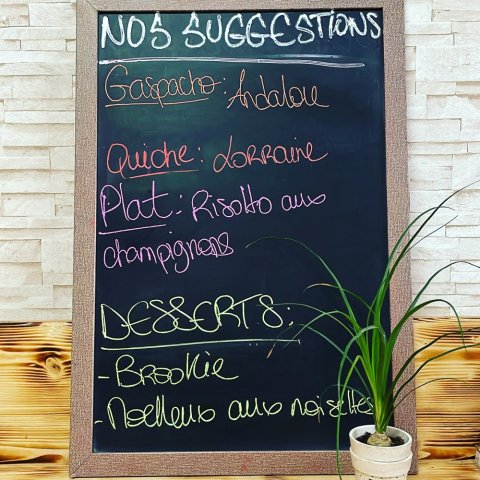 NOS SUGGESTIONS
Gaspacho: Andalou
Quiche: Lorraine
Plat: Risotto aux
champignons
DESSERTS:
- Brookie
- Moelleux aux noisettes